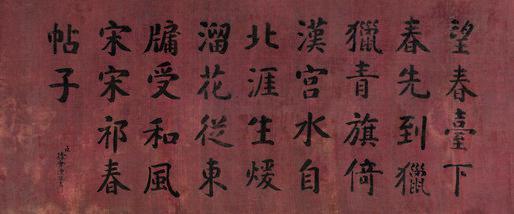 望春臺下
春先到獵
獵青旗倚
漢宮水自
北涯生煖
溜花從東
牖受和風
宋宋祁春
帖子